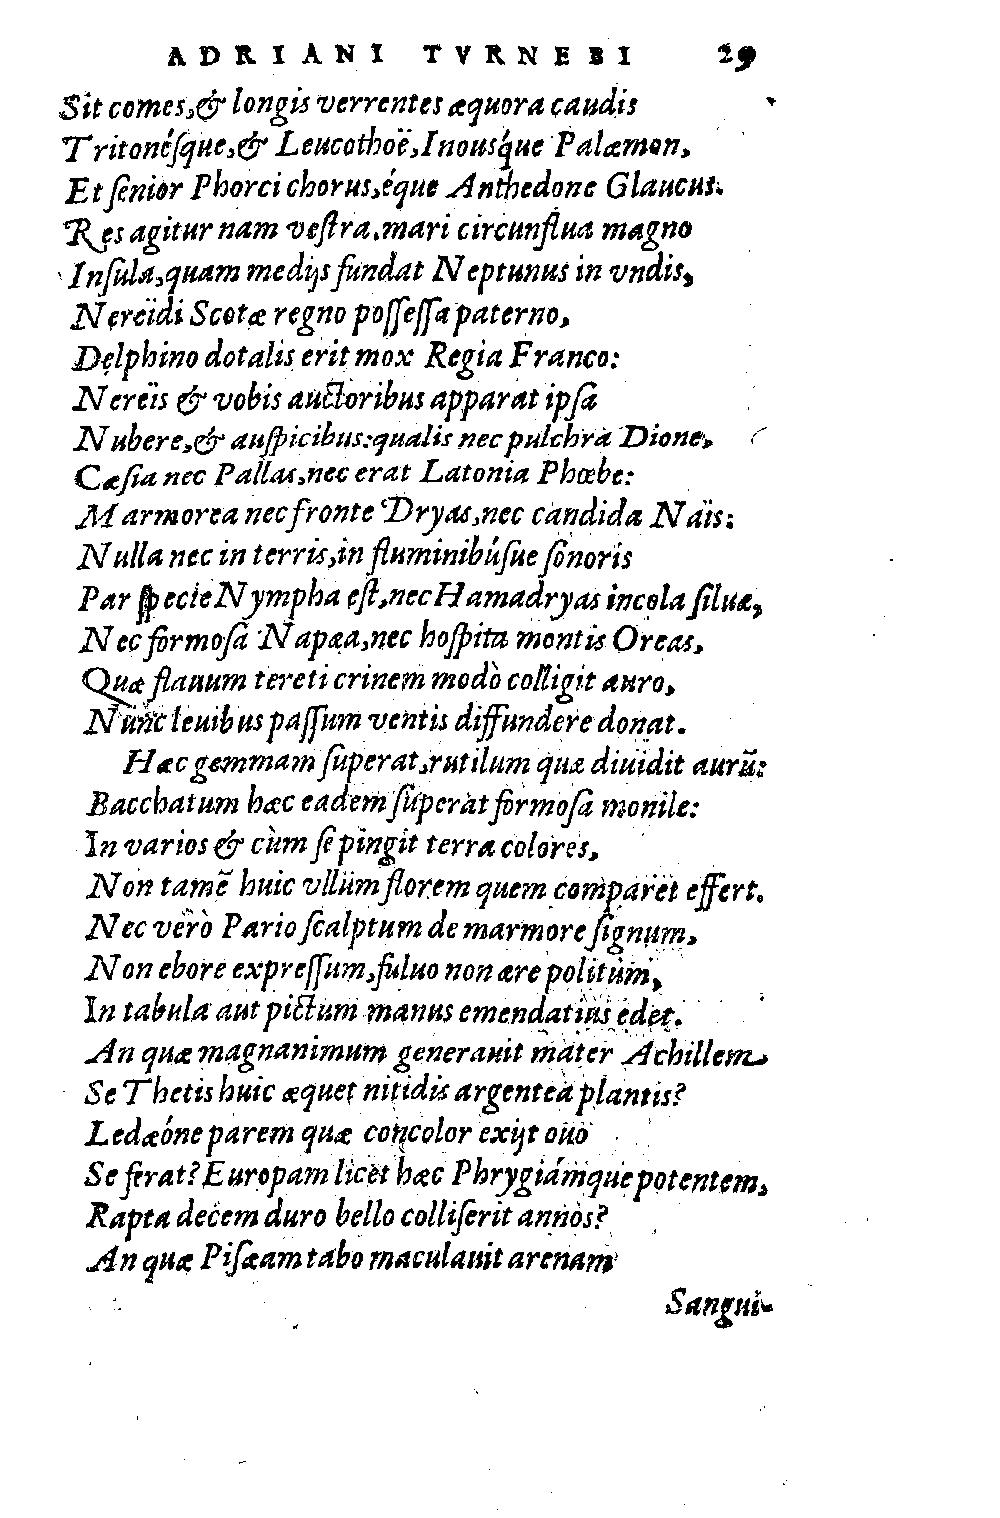 ADRIANI TVRNEBI 29
Sit comes, & longis verrentes æquora caudis
Tritonésque, & Leucothoë, Inousq́ue Palæmon,
Et ſenior Phorci chorus, éque Anthedone Glaucus.
Res agitur nam veſtra, mari circunflua magno
Inſula, quam medijs fundat Neptunus in vndis,
Nereïdi Scotæ regno poſſeſſa paterno,
Delphino dotalis erit mox Regia Franco:
Nereïs & vobis auctoribus apparat ipſa
Nubere, & auſpicibus: qualis nec pulchra Dione,
Cæſia nec Pallas, nec erat Latonia Phœbe:
Marmorea nec fronte Dryas, nec candida Naïs:
Nulla nec in terris, in fluminibúſue ſonoris
Par ſpecie Nympha eſt, nec Hamadryas incola ſiluæ,
Nec formoſa Napæa, nec hoſpita montis Oreas,
Quæ flauum tereti crinem modò colligit auro,
Nunc leuibus paſſum ventis diffundere donat.
Hæc gemmam ſuperat, rutilum quæ diuidit aurū:
Bacchatum hæc eadem ſuperat formoſa monile:
In varios & cùm ſe pingit terra colores,
Non tamē huic vllum florem quem comparet effert.
Nec verò Pario ſcalptum de marmore ſignum,
Non ebore expreſſum, fuluo non ære politum,
In tabula aut pictum manus emendatius edet.
An quæ magnanimum generauit mater Achillem
Se Thetis huic æquet nitidis argentea plantis?
Ledæóne parem quæ concolor exijt ouo
Se ferat? Europam licet hæc Phrygiámque potentem,
Rapta decem duro bello colliſerit annos?
An quæ Piſæam tabo maculauit arenam
Sangui-